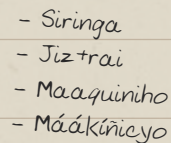 - Siringa
- Jiztrai
- Maaquiniho
- Máákíñicyo